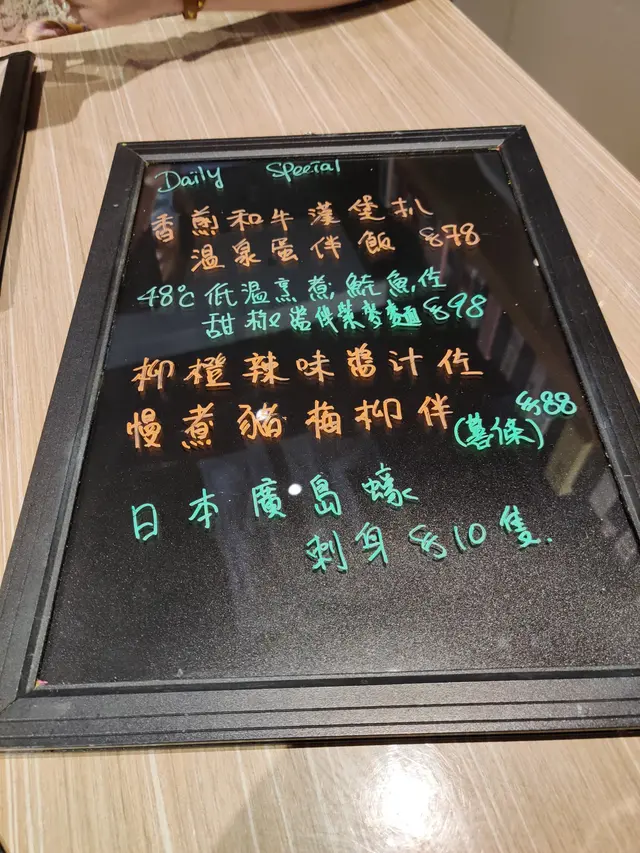 Daily Special
香煎和牛漢堡扒
溫泉蛋伴飯 $78
48°c 低溫烹煮,魷魚,佐
甜椒醬伴紫麥麵 $98
柳橙辣味醬汁佐
慢煮豬梅柳伴 $88
(薯條)
日本廣島蠔
刺身 $10 隻.